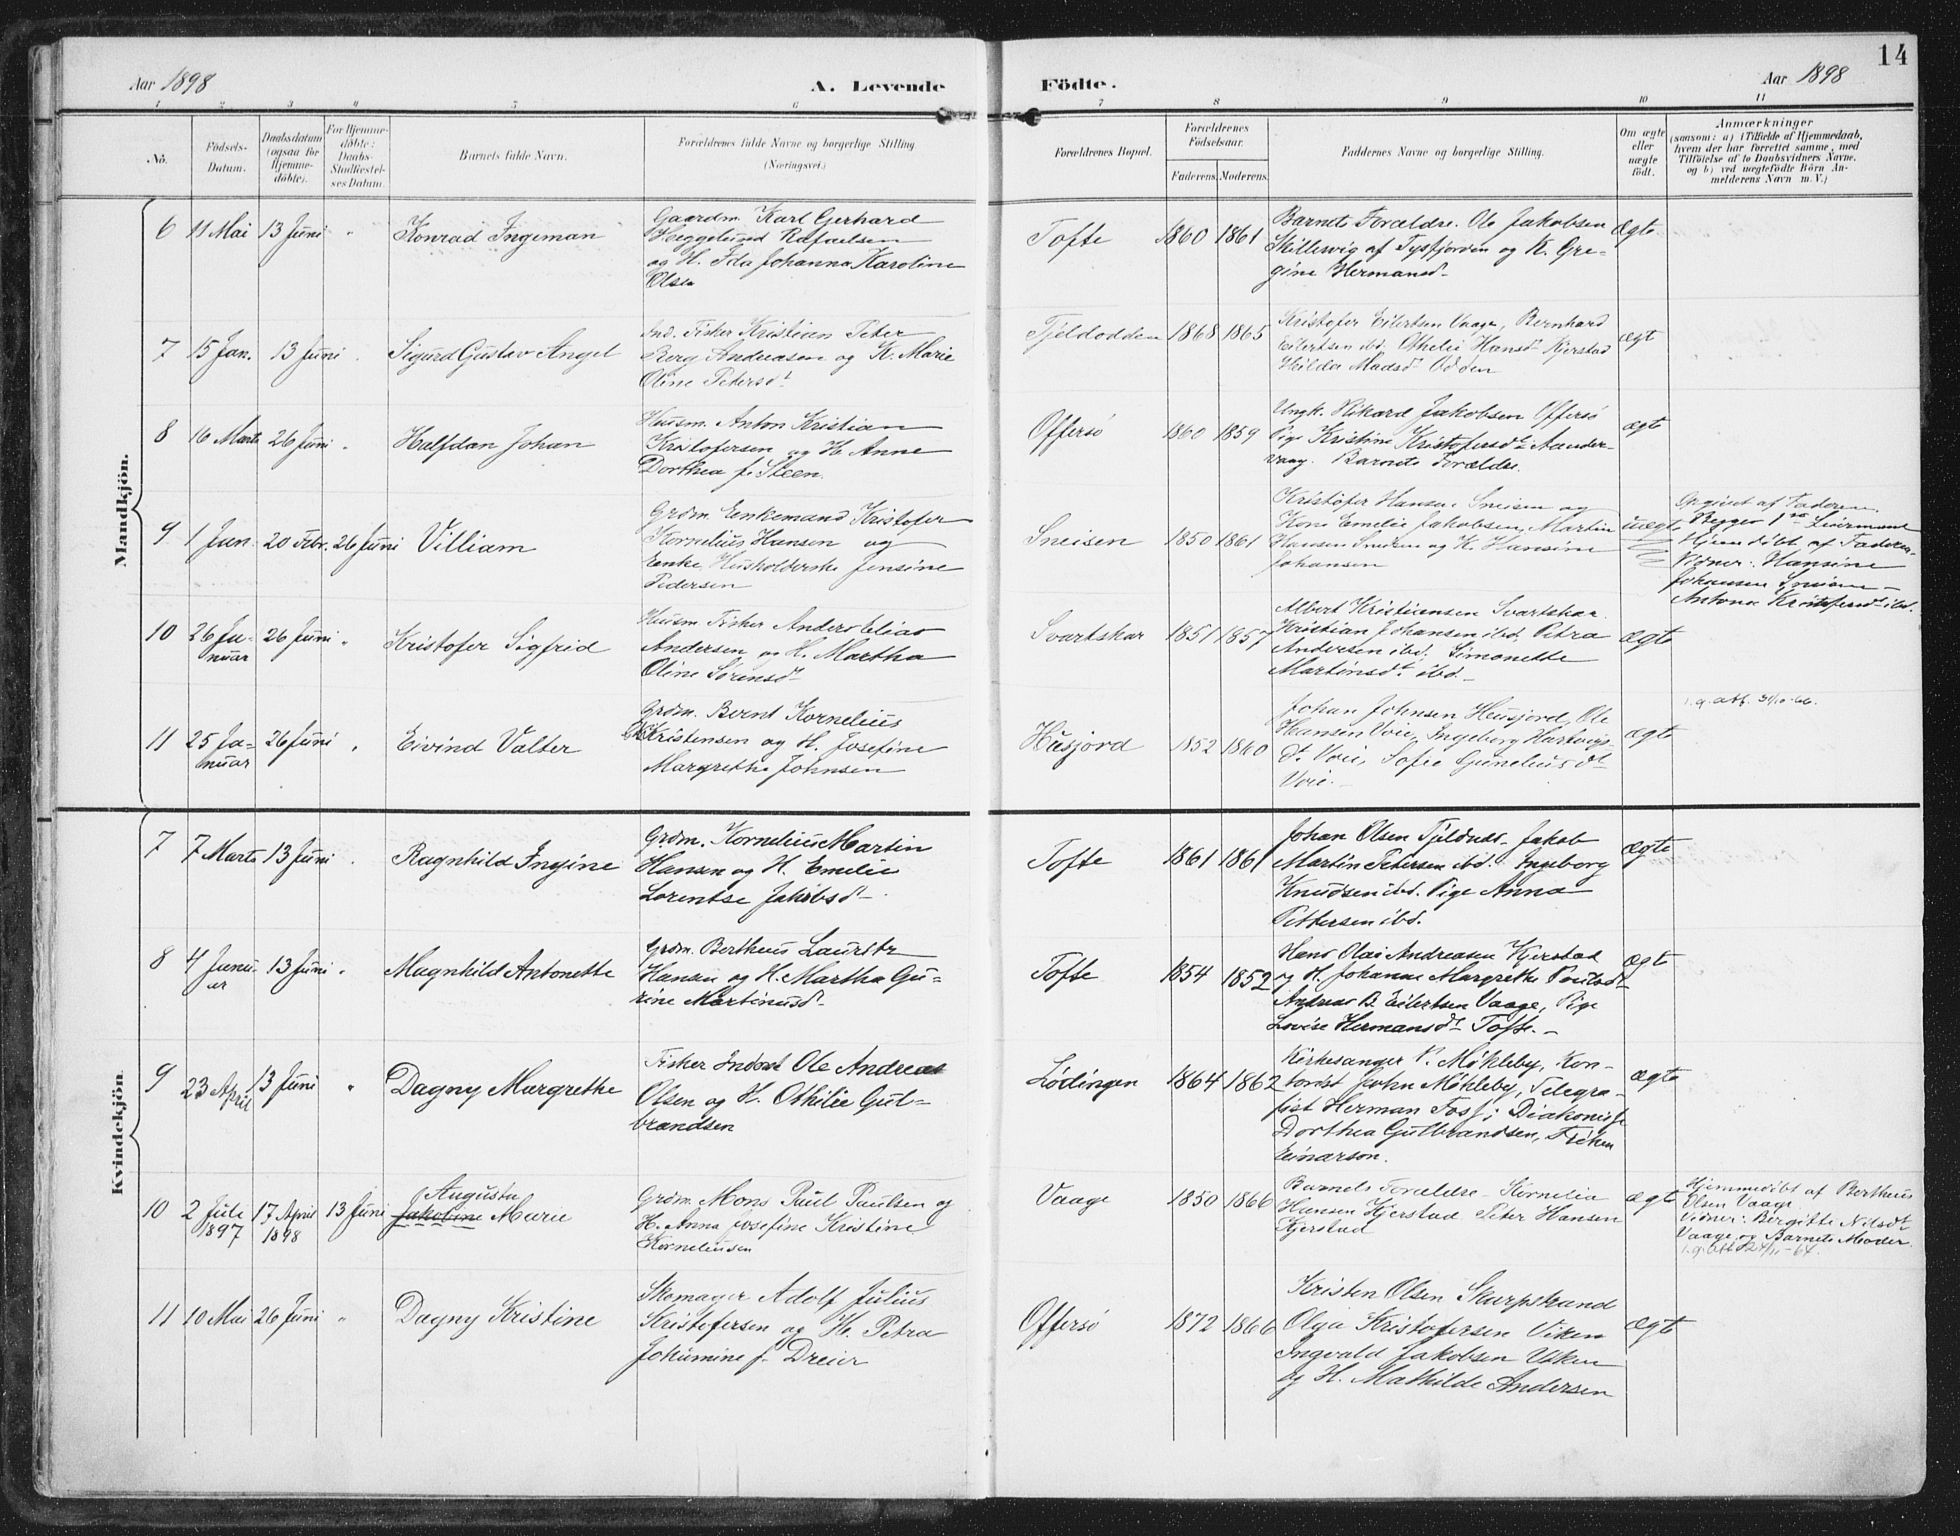 14
Aar 1898
A. Levende
Födte.
Aar 1898
1 2 3 4 5 6 7 8 9 10 11
No.
Födsels-
Datum.
Daabsdatum
(ogsaa for
Hjemme-
döbte).
For Hjemme-
döbte:
Daabs-
Stadfæstel-
ses Datum.
Barnets fulde Navn.
Forældrenes fulde Navne og borgerlige Stilling
(Næringsvei.)
Forældrenes Bopæl.
Forældrenes
Födselsaar.
Faderens. Moderens.
Faddernes Navne og borgerlige Stilling.
Om ægte
eller
uægte
födt.
Anmærkninger
(saasom: a) i Tilfælde af Hjemmedaab,
hvem der har forrettet samme, med
Tilföielse af to Daabsvidners Navne,
og b) ved uægtefödte Börn An-
melderens Navn m. V.)
Mandkjön.
6 11 Mai 13 Juni " Konrad Ingeman
Gaardm. Karl Gerhard
Heggelund Rafaelsen
og H. Ida Johanna Karoline
Olsen
Tofte 1860 1861
Barnets Forældre. Ole Jakobsen
Skillevig af Tysfjorden og K. Gre-
gine Hermansd.
Ægte
7 15 Jan. 13 Juni Sigurd Gustav Angel
Ind. Fisker Kristian Peter
Berg Andreasen og K. Marie
Oline Petersdt
Tjeldodden 1868 1865
Kristofer Eilertsen Vaage, Bernhard
Eilertsen ibd. Othelie Hansdt Kjerstad
Hilda Madsdt Odden
ægt
8 16 Marts 26 Juni Halfdan Johan
Husm. Anton Kristian
Kristofersen og H. Anne
Dorthea f. Steen
Offersö 1860 1859
Ungk. Rikard Jakobsen Offersö
Pige Kristine Kristofersdt Aander-
vaag. Barnets Forældre.
ægt
9 1 Jan. 20 Febr. 26 Juni Villiam
Grdm. Enkemand Kristofer
Kornelius Hansen og
Enke Husholderske Jensine
Pedersen
Sneisen 1850 1861
Kristofer Hansen Sneisen og
Kone Emelie Jakobsen, Martin
Hansen Sneisen og K. Hansine
Johansen
uægt
Opgivet af Faderen.
Begges 1ste Leiermaal
Hjemdöbt af Faderen.
Vidner: Hansine
Johansen Sneisen
Antona Kristofersdt ibd.
10 26 Ja-
nuar
26 Juni " Kristofer Sigfrid
Husm. Fisker Anders Elias
Andersen og H. Martha
Oline Sörensdt
Svartskar 1851 1857
Albert Kristiansen Svartskar
Kristian Johansen ibd. Petra
Andersen ibd. Simonette
Martinsdt ibd.
Ægte
11 25 Ja-
nuar
26 Juni " Eivind Valter
Grdm. Bernt Kornelius
Kristensen og H. Josefine
Margrethe Johnsen
Husjord 1852 1860
Johan Johnsen Husjord, Ole
Hansen Voie, Ingeborg Hartvigs-
dt Voie, Sofie Guneliusdt
Voie.
Ægte
i.g. att. 31/10-66.
Kvindekjön
7 7 Marts 13 Juni Ragnhild Ingine
Grdm. Kornelius Martin
Hansen og H. Emelie
Lorentse Jakobsd
Tofte 1861 1861
Johan Olsen Tjeldnes. Jakob
Martin Petersen ibd. Ingeborg
Knudsen ibd. Pige Anna
Pettersen ibd.
Ægte
8 4 Janu-
ar
13 Juni " Magnhild Antonette
Grdm. Bertheus Lauritz
Hansen og H. Martha Gu-
rine Martinusdt
Tofte 1854 1852
Hans Olai Andreasen Kjerstad
og H. Johanne Margrethe Poulsdt
Andreas B. Eilertsen Vaage, Pige
Lovise Hermansdt Tofte.
Ægt
9 23 April 13 Juni " Dagny Margrethe
Fisker Inderst Ole Andreas
Olsen og H. Othilie Gul-
brandsen
Lödingen 1864 1862
Kirkesanger P. Mökleby, Kon-
torist John Mökleby, Telegra-
fist Herman Foss; Diakonisse
Dorthea Gulbrandsen, Fröken
Einarson.
Ægte
10 2 Juli
1897
17 April
1898
13 Juni
Augusta
Jakobine Marie
Grdm. Mons Paul Paulsen og
H. Anna Josefine Kristine
Korneliussen
Vaage 1850 1866
Barnets Forældre. Kornelia
Hansen Kjerstad Peter Hansen
Kjerstad
ægt
Hjemmedöbt af Bertheus
Olsen Vaage
Vidner: Bergitte Nilsdt
Vaage og Barnets Moder.
11 10 Mai 26 Juni " Dagny Kristine
Skomager Adolf Julius
Kristofersen og H. Petra
Jokumine f. Dreier
Offersö 1872 1866
Kristen Olsen Skarpstrand
Olga Kristofersen Viken
Ingvald Jakobsen Viken
og H. Mathilde Andersen
Ægte